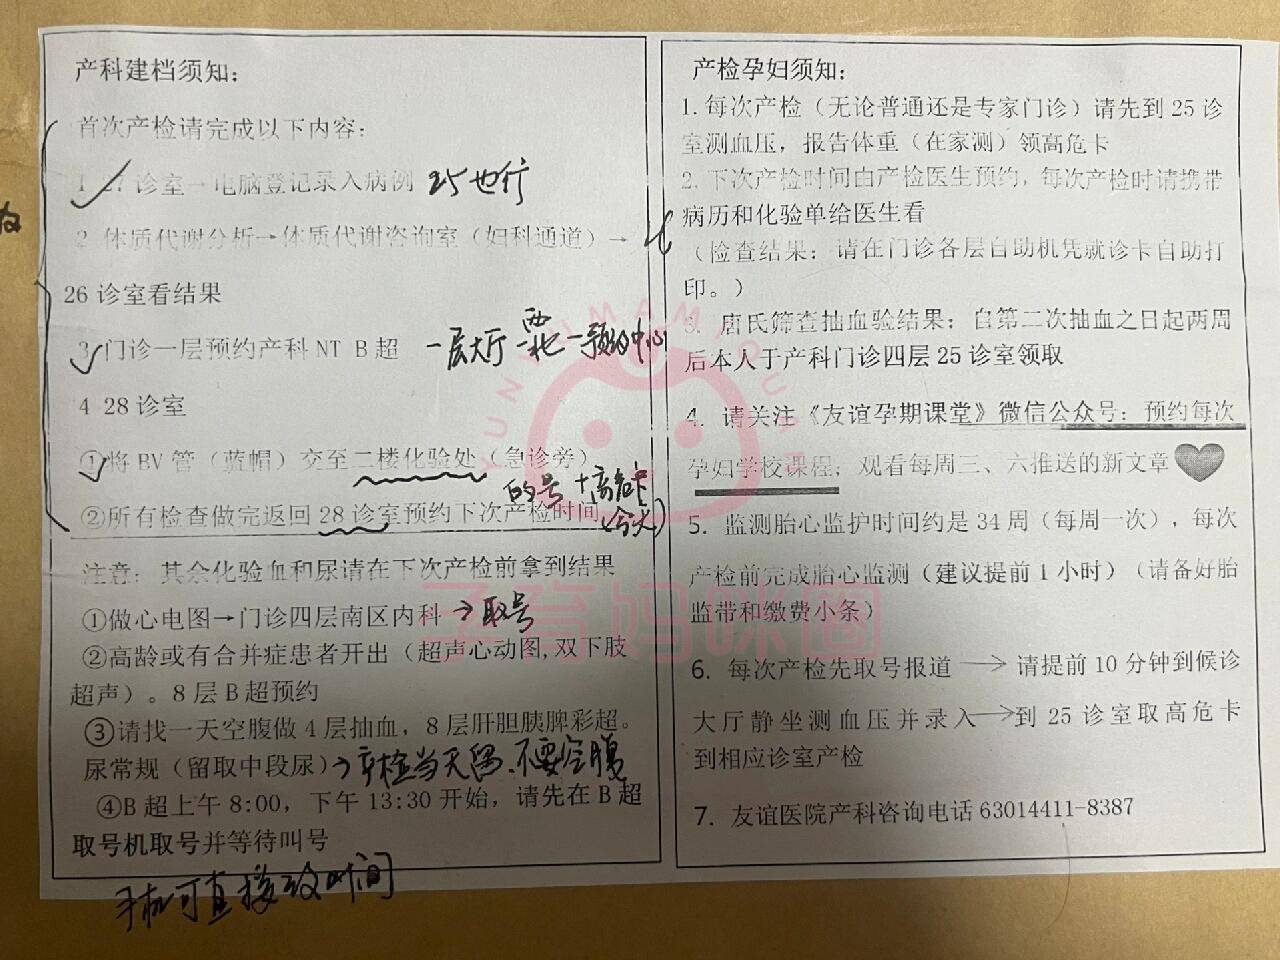 产科建档须知：
首次产检请完成以下内容：
1 27 诊室→电脑登记录入病例 25也行
2 体质代谢分析→体质代谢咨询室（妇科通道）→
26 诊室看结果
3 门诊一层预约产科 NT B 超 一层大厅 西北 一预约中心
4 28 诊室
①将 BV 管（蓝帽）交至二楼化验处（急诊旁）
的号 +高危卡
②所有检查做完返回 28 诊室预约下次产检时间 (今天)
注意：其余化验血和尿请在下次产检前拿到结果
①做心电图→门诊四层南区内科→取号
②高龄或有合并症患者开出（超声心动图,双下肢
超声）。8 层 B 超预约
③请找一天空腹做 4 层抽血，8 层肝胆胰脾彩超。
尿常规（留取中段尿）→产检当天留、不要空腹
④B 超上午 8:00，下午 13:30 开始，请先在 B 超
取号机取号并等待叫号
手机可直接改时间
产检孕妇须知：
1.每次产检（无论普通还是专家门诊）请先到 25 诊
室测血压，报告体重（在家测）领高危卡
2.下次产检时间由产检医生预约，每次产检时请携带
病历和化验单给医生看
（检查结果：请在门诊各层自助机凭就诊卡自助打
印。）
3. 唐氏筛查抽血验结果：自第二次抽血之日起两周
后本人于产科门诊四层 25 诊室领取
4. 请关注《友谊孕期课堂》微信公众号：预约每次
孕妇学校课程；观看每周三、六推送的新文章
5. 监测胎心监护时间约是 34 周（每周一次），每次
产检前完成胎心监测（建议提前 1 小时）（请备好胎
监带和缴费小条）
6. 每次产检先取号报道 → 请提前 10 分钟到候诊
大厅静坐测血压并录入→到 25 诊室取高危卡
到相应诊室产检
7. 友谊医院产科咨询电话 63014411-8387
YUNYUMAMAQUAN
孕育妈咪圈